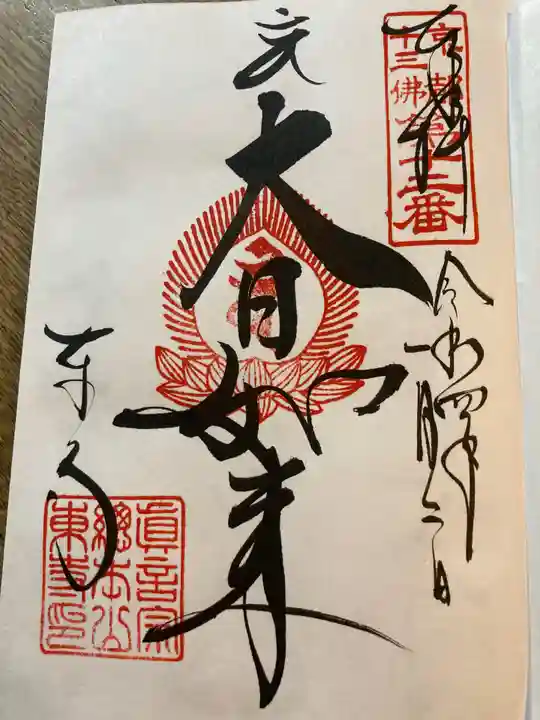 奉拝
京都十三佛第十二番
令和四年
一月二日
大日如来
東寺
真言宗
総本山
東寺印